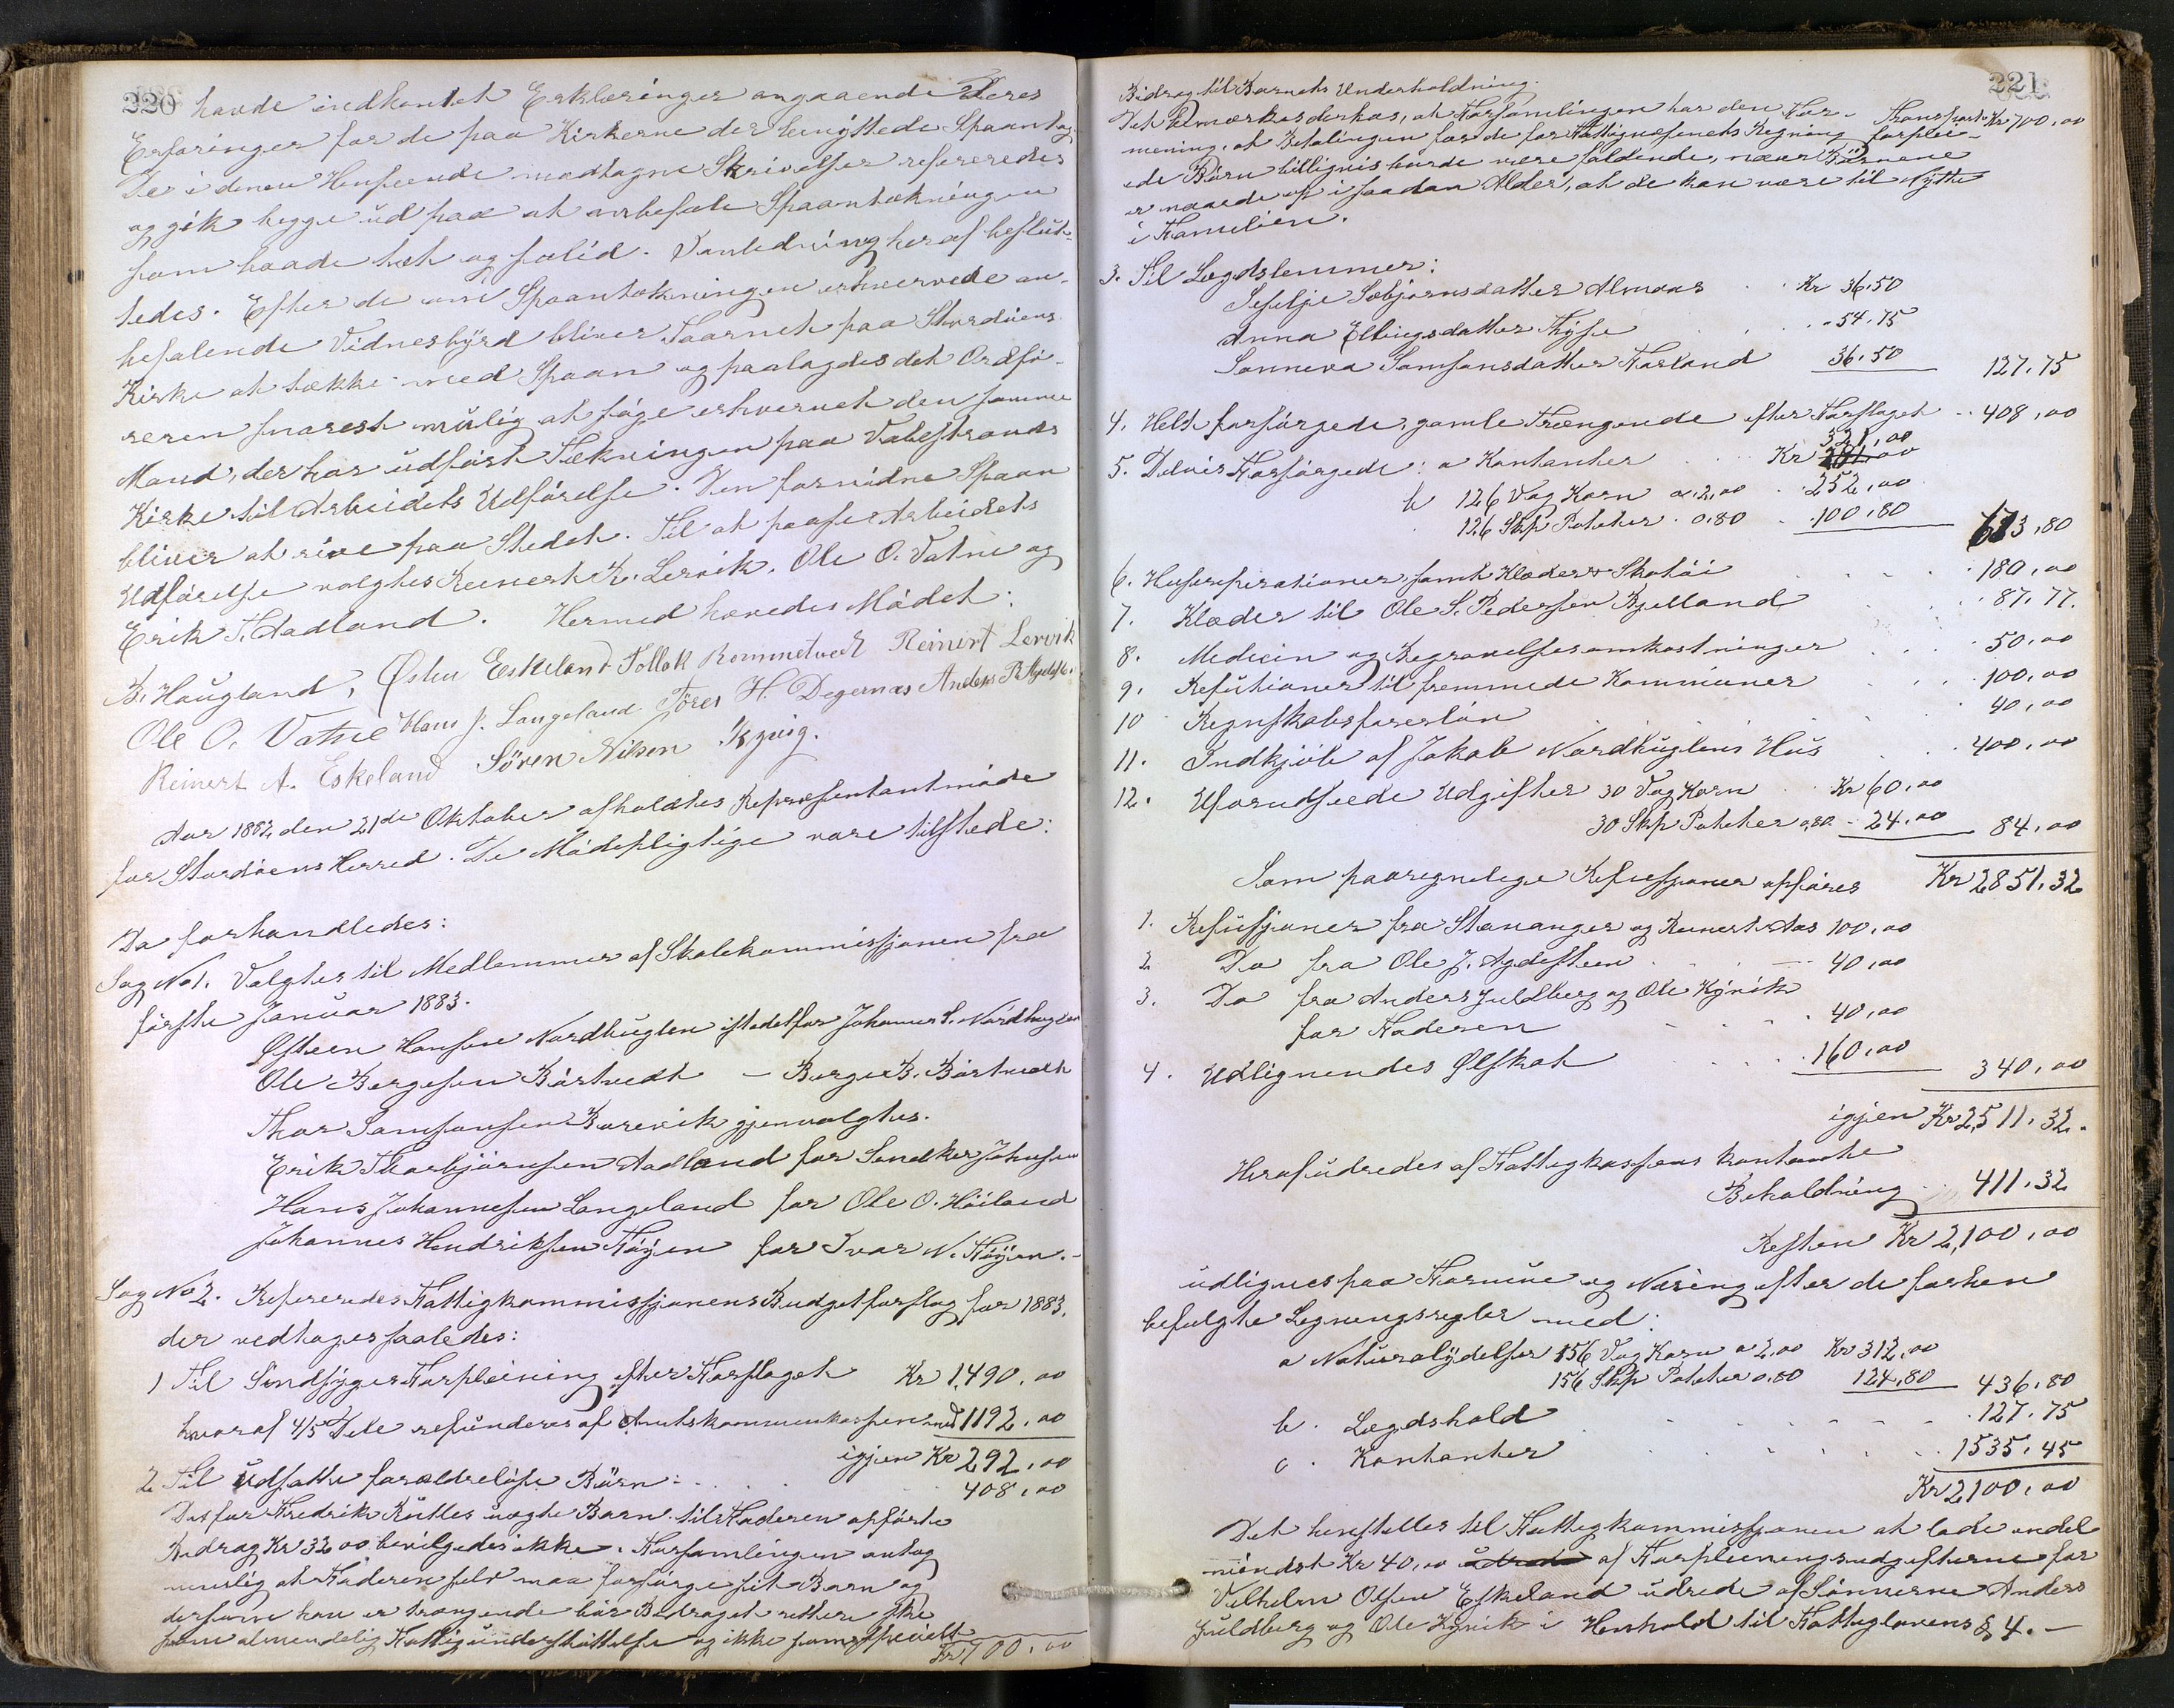 220
havde indhentet Erklæringer angaaende Deres
Erfaringer for de paa Kirkerne der benyttede Spaantag
De i denne Henseende modtagne Skrivelser refereredes
og gik begge ud paa at anbefale Spaantækningen
som baade tæt og solid. I Anledning heraf beslut-
tedes. Efter de om Spaantækningen erhvervede an-
befalende Vidnesbyrd bliver Taarnet paa Stordøens
Kirke at tække med Spaan og paalagdes det Ordfø-
reren snarest mulig at søge erhvervet den samme
Mand, der har udført Tækningen paa Valestrands
Kirke til Arbeidets Udførelse. Den fornødne Spaan
bliver at rive paa Stedet. Til at paase Arbeidets
Udførelse valgtes Reinert R. Lervik, Ole O. Vatne og
Erik T. Aadland. Hermed hævedes Mødet:
B. Haugland, Østen Eskeland Tollak Rommetvedt Reinert Lervik
Ole O. Vatne Hans J. Langeland Tøres H. Degernæs Anders R Agdest.
Reinert A. Eskeland Sören Nilsen Kyvig.
Aar 1882 den 21de Oktober afholdtes Repræsentantmøde
for Stordøens Herred. De Mødepligtige vare tilstede:
Da forhandledes:
Sag No 1. Valgtes til Medlemmer af Skolekommissjonen fra
første Januar 1883.
Østen Hansen Nordhuglen istedetfor Johannes S. Nordhuglen
Ole Børgesen Børtvedt — Børge B. Børtvedt
Thor Samsonsen Barevik gjenvalgtes.
Erik Thorbjørnsen Aadland for Sondker Johnsen
Hans Johannesen Langeland for Ole O. Høiland
Johannes Hendriksen Føyen for Ivar N. Føyen.-
Sag No 2. Refereredes Fattigkommissjonens Budgetforslag for 1883,
der vedtoges saaledes:
1 Til Sindsyges Forpleining efter Forslaget Kr 1,490,00
hvoraf 4/5 Dele refunderes af Amtskommunekassen med 1192,00
igjen Kr 292,00
2 Til Udsatte forældreløse Børn: 408,00
Det for Fredrik Rutles uægte Barn til Faderen opførte
Bidrag Kr 32,00 bevilgedes ikke. Forsamlingen antog
nemlig at Faderen selv maa forsørge sit Barn og
dersom han er trængende bør Bidraget rettere ske
som almindelig Fattigunderstøttelse og ikke som specielt
Kr 700,00
221
Bidrag til Barnets Underholdning.
Det bemærkes derhos, at Forsamlingen har den For- Transport Kr 700,00
mening, at Betalingen for de for Fattigvæsenets Regning forplei-
ede Børn billigvis burde være faldende, naar Børnene
er naaede op i saadan Alder, at de kan være til Nytte
i Familien.
3. Til Lægdslemmer:
Seselje Sæbjørnsdatter Almaas Kr 36,50
Anna Ellingsdatter Tyse - 54,75
Sønneva Samsonsdatter Førland 36,50 127,75
4. Helt forsørgede, gamle Trængende efter Forslaget - 408,00
321,00
5. Delvis Forsørgede: a Kontanter Kr 281,00
b 126 Vog Korn a 2,00 252,00
126 Skp Poteter 0,80 - 100,80 673,80
6. Husreperationer samt Klæder & Skotøi 180,00
7. Klæder til Ole S. Pedersen Bjelland 87,77.
8. Medicin og Begravelsesomkostninger 50,00
9. Refutioner til fremmede Kommuner 100,00
10 Regnskabsførerløn 40,00
11. Indkjøb af Jakob Nordhuglens Hus 400,00
12. Uforudseede Udgifter 30 Vog Korn Kr 60,00
30 Skp Poteter 0,80 - 24,00 84,00
Kr 2851,32
Som paaregnelige Refusjoner opføres
1. Refusjoner fra Stavanger og Reinert Aas 100,00
2 Do fra Ole J. Agdesteen 40,00
3. Do fra Anders Juldberg og Ole Kyvik
for Faderen 40,00
4. Udlignendes Ølskat 160,00 340,00
igjen Kr 2,511,32.
Heraf udredes af Fattigkassens kontante
Beholdning 411,32
Resten Kr 2,100,00
udlignes paa Formue og Næring efter de forhen
befulgte Ligningsregler med:
a Naturalydelser 156 Vog Korn a 2,00 Kr 312,00
156 Skp Poteter 0,80 124,80 436,80
b. Lægdshold 127,75
c. Kontanter 1535,45
Kr 2100,00
Det henstilles til Fattigkommissjonen at lade endel
mindst Kr 40,00 udrede af Forpleiningsudgifterne for
Vilhelm Olsen Eskeland udrede af Sønnerne Anders
Juldberg og Ole Kyvik i Henhold til Fattiglovens § 4.—